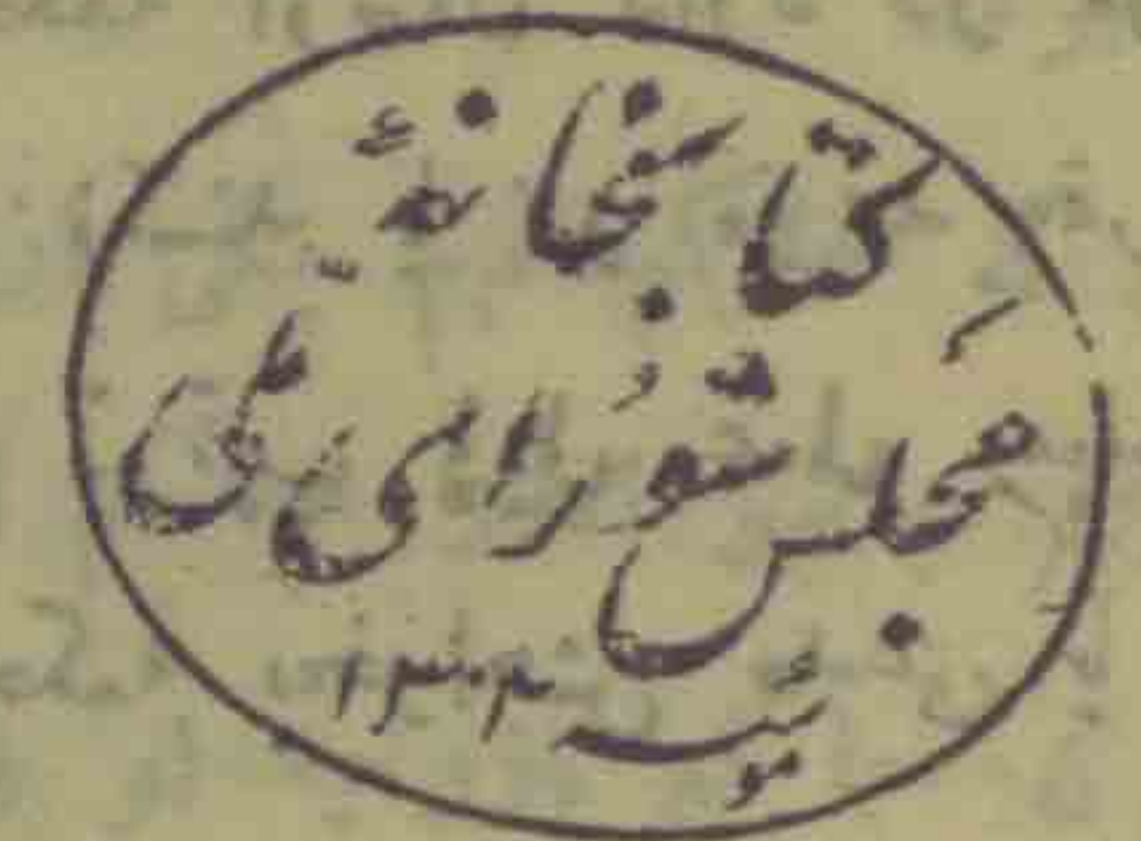 کتابخانهٔ
مجلس شورای ملّی
مؤسسه ۱۳۰۴